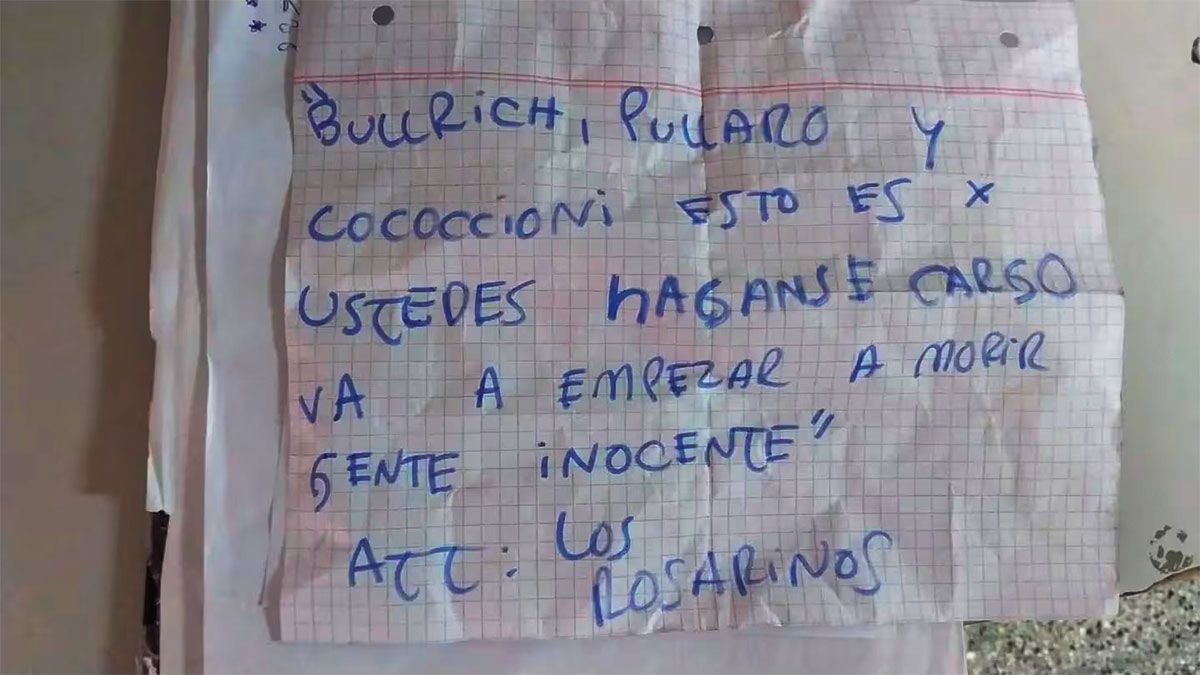 "BULLRICH, PULLARO Y
COCOCCIONI ESTO ES X
USTEDES HAGANSE CARGO
VA A EMPEZAR A MORIR
GENTE INOCENTE"
ATT: LOS
ROSARINOS